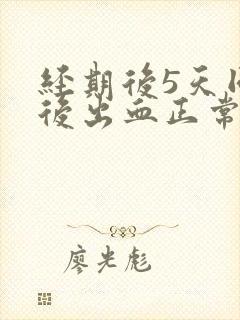 經期後5天
後出血正常
廖光彪